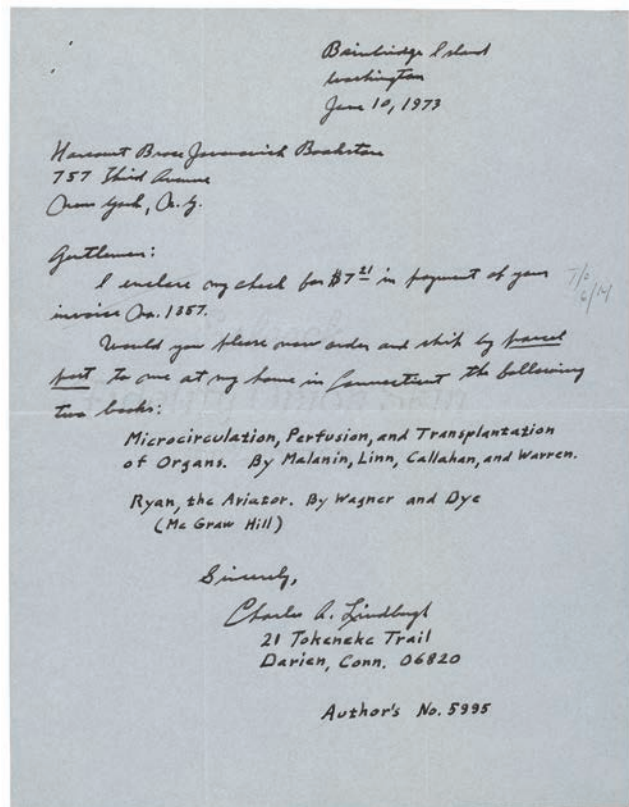 Bainbridge Island
Washington
June 10, 1973
Harcourt Brace Jovanovich Bookstore
757 Third Avenue
New York, N.Y.
Gentlemen:
I enclose my check for $7 21 in payment of your
invoice No. 1357.
Would you please now order and ship by parcel
post to me at my home in Connecticut the following
two books:
Microcirculation, Perfusion, and Transplantation
of Organs. By Malanin, Linn, Callahan, and Warren.
Ryan, the Aviator. By Wagner and Dye
(Mc Graw Hill)
Sincerely,
Charles A. Lindbergh
21 Tokeneke Trail
Darien, Conn. 06820
Author's No. 5995